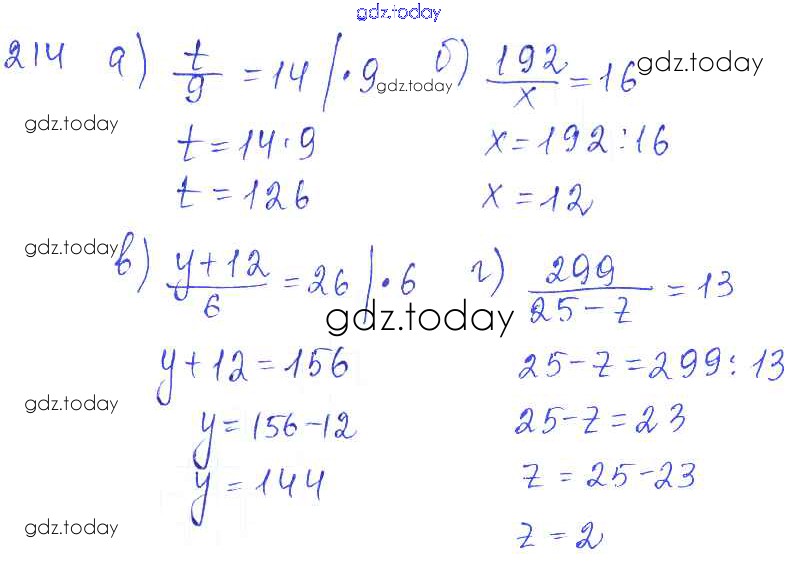 gdz.today
214 а) t/9 = 14 | · 9 gdz.today б) 192/x = 16 gdz.today
gdz.today
t = 14 · 9 x = 192 : 16
t = 126 x = 12
gdz.today
в) y + 12/6 = 26 | · 6 г) 299/25 - z = 13
gdz.today
y + 12 = 156 25 - z = 299 : 13
gdz.today
y = 156 - 12 25 - z = 23
y = 144 z = 25 - 23
gdz.today
z = 2